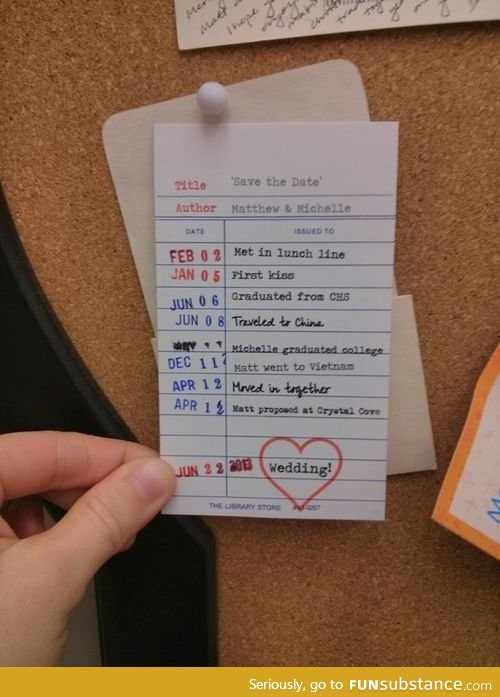 Title 'Save the Date'
Author Matthew & Michelle
DATE ISSUED TO
FEB 02 Met in lunch line
JAN 05 First kiss
JUN 06 Graduated from CHS
JUN 08 Traveled to China
Michelle graduated college
DEC 11 Matt went to Vietnam
APR 12 Moved in together
APR 12 Matt proposed at Crystal Cove
JUN 22 2013 Wedding!
THE LIBRARY STORE
Seriously, go to FUNsubstance.com